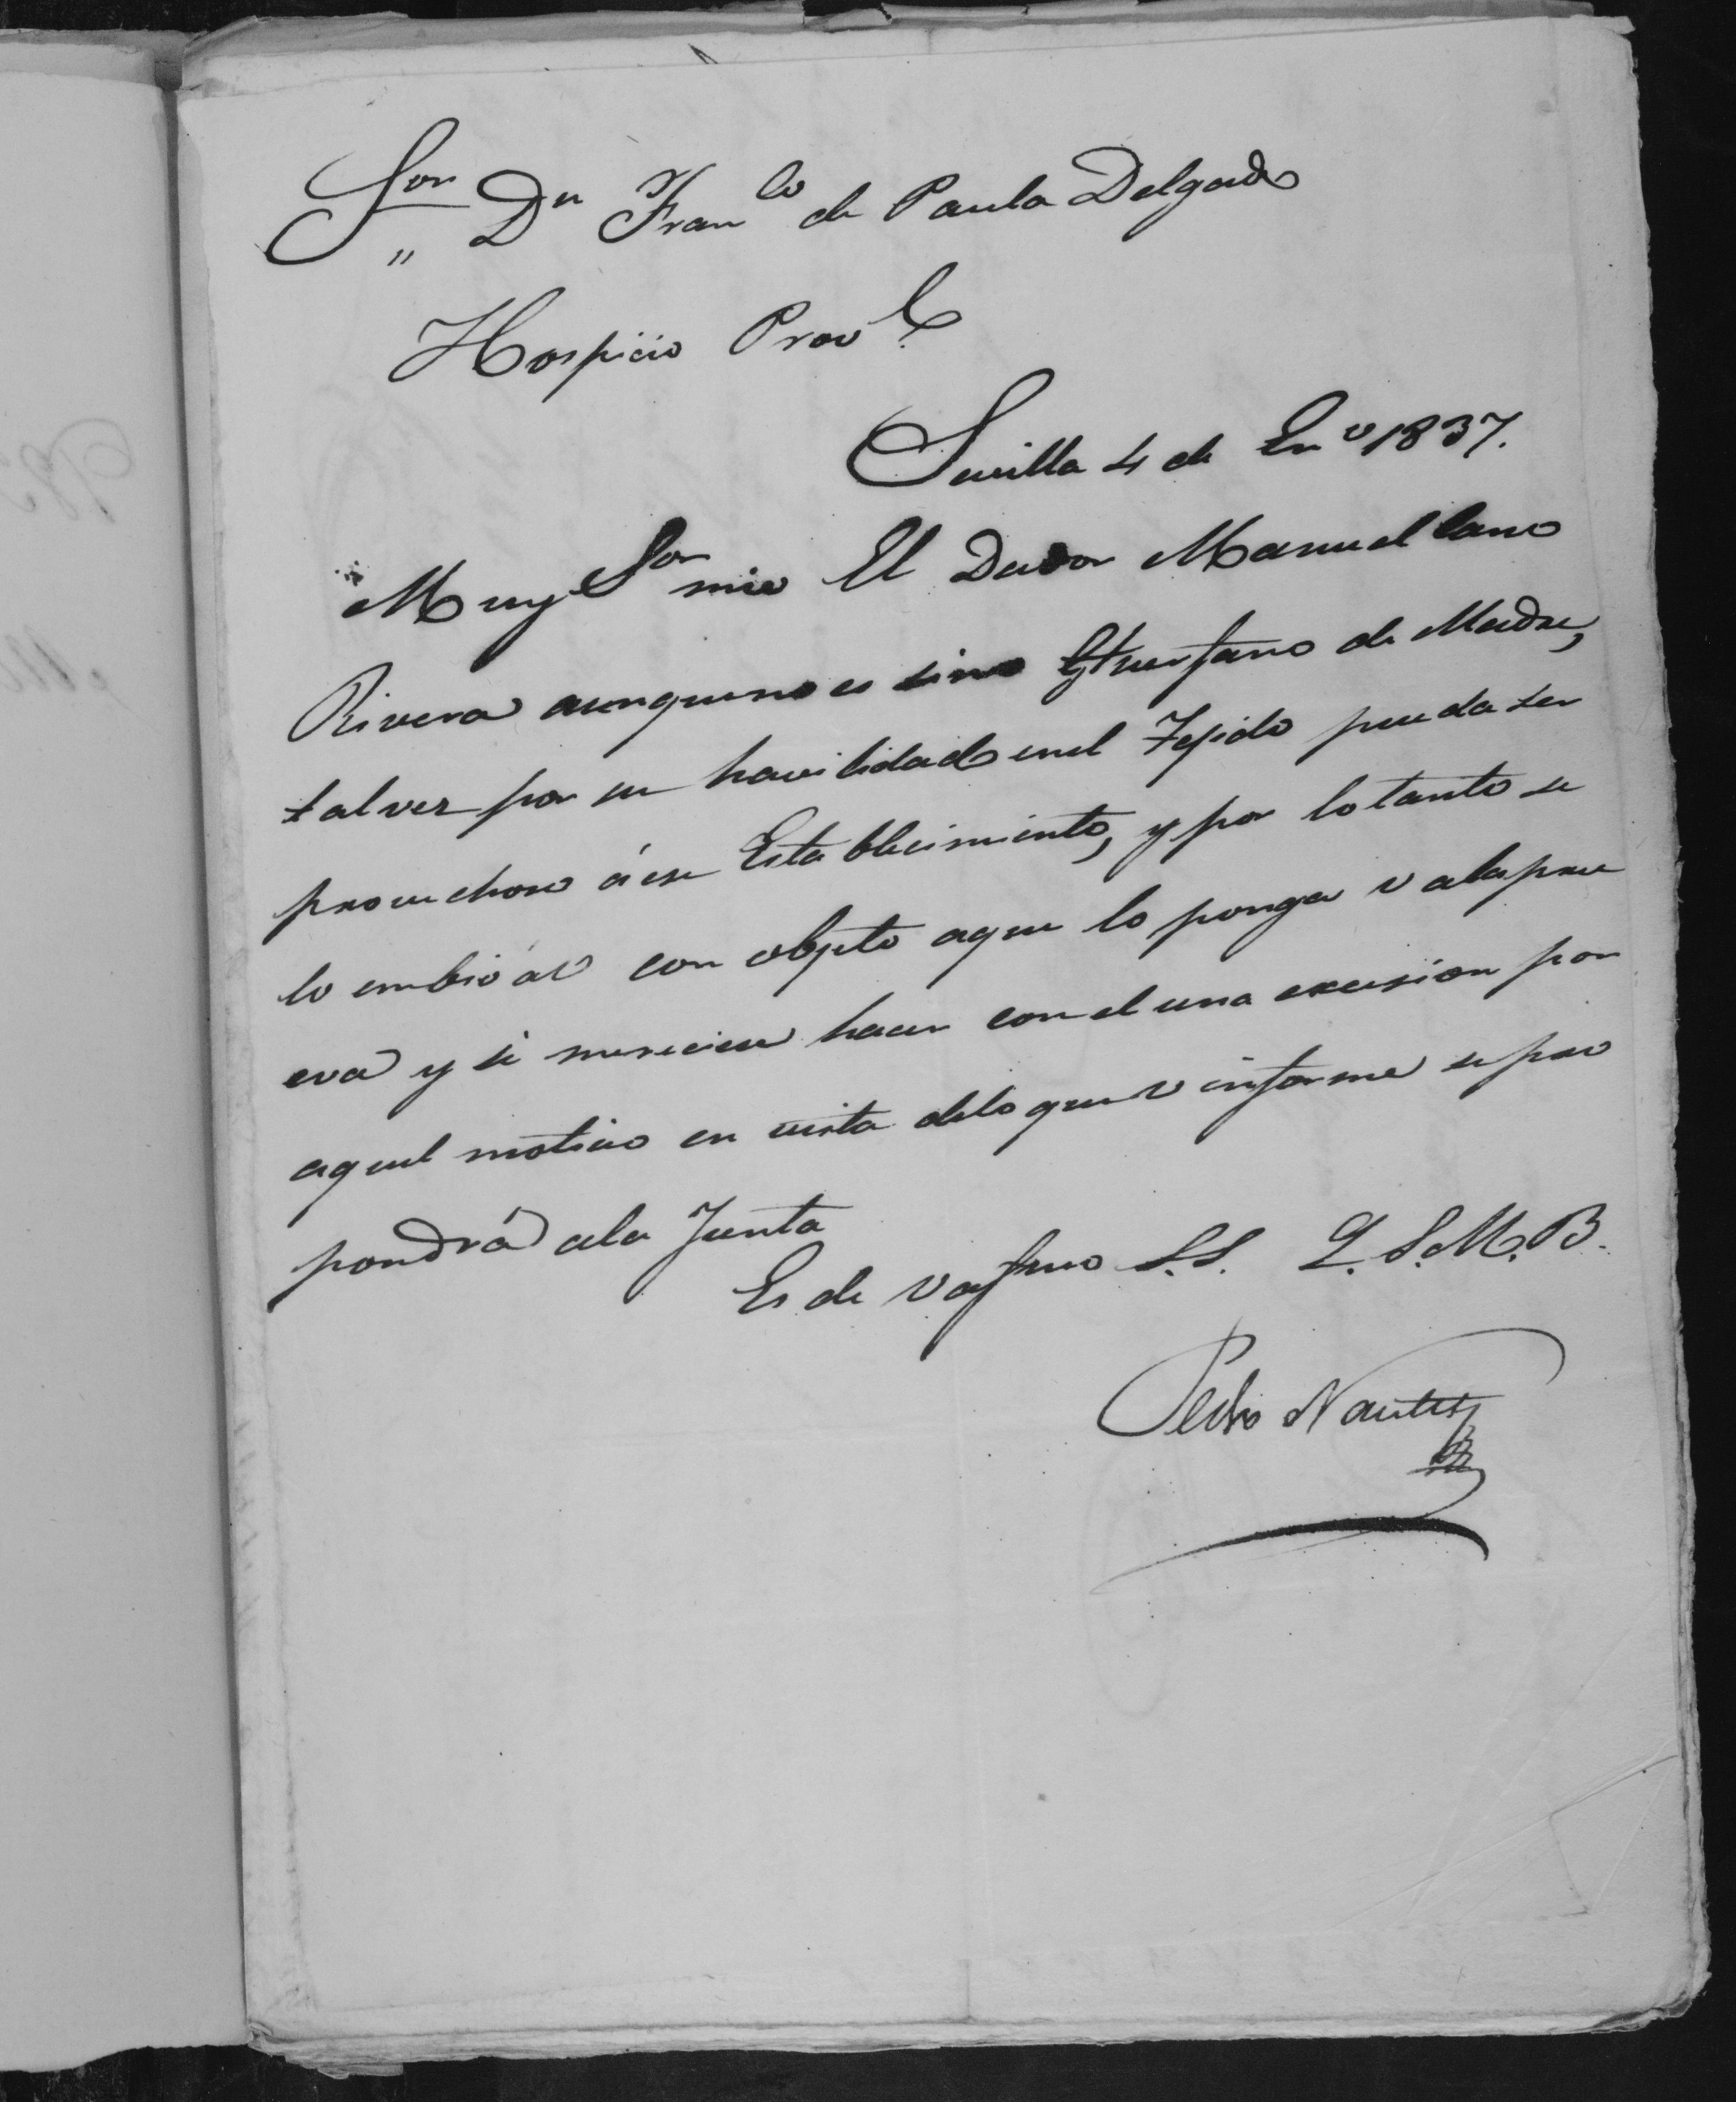 Sor Dn Franco de Paula Delgado
Hospicio Provl
Sevilla 4 de Eno 1837.
Muy Sor mio El Dador Manuel Cano
Rivera aunque no es sino Huerfano de Madre,
talvez por su havilidad en el Tejido pueda ser
provechoso á ese Establecimiento, y por lo tanto se
lo embio á V con objeto aque lo ponga V ala pru
eva y si mereciese hacer con el una excesion por
aquel motivo en vista delo que V informe se pro
pondrá ala Junta
Es de V afmo S.S. Q. S. M. B.
Pedro